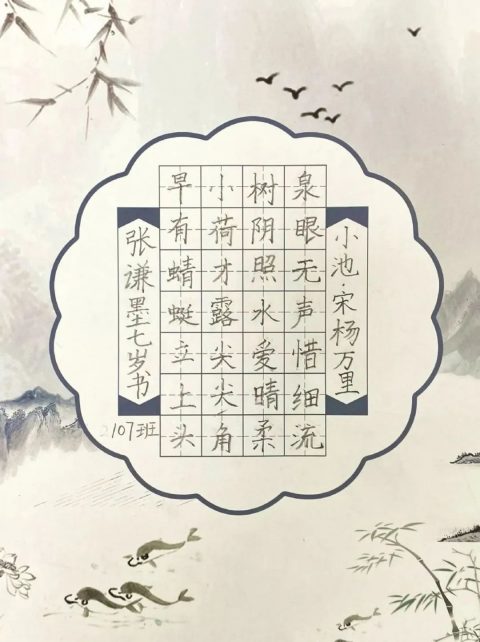 小池·宋杨万里
泉眼无声惜细流
树阴照水爱晴柔
小荷才露尖尖角
早有蜻蜓立上头
张谦墨七岁书
2107班